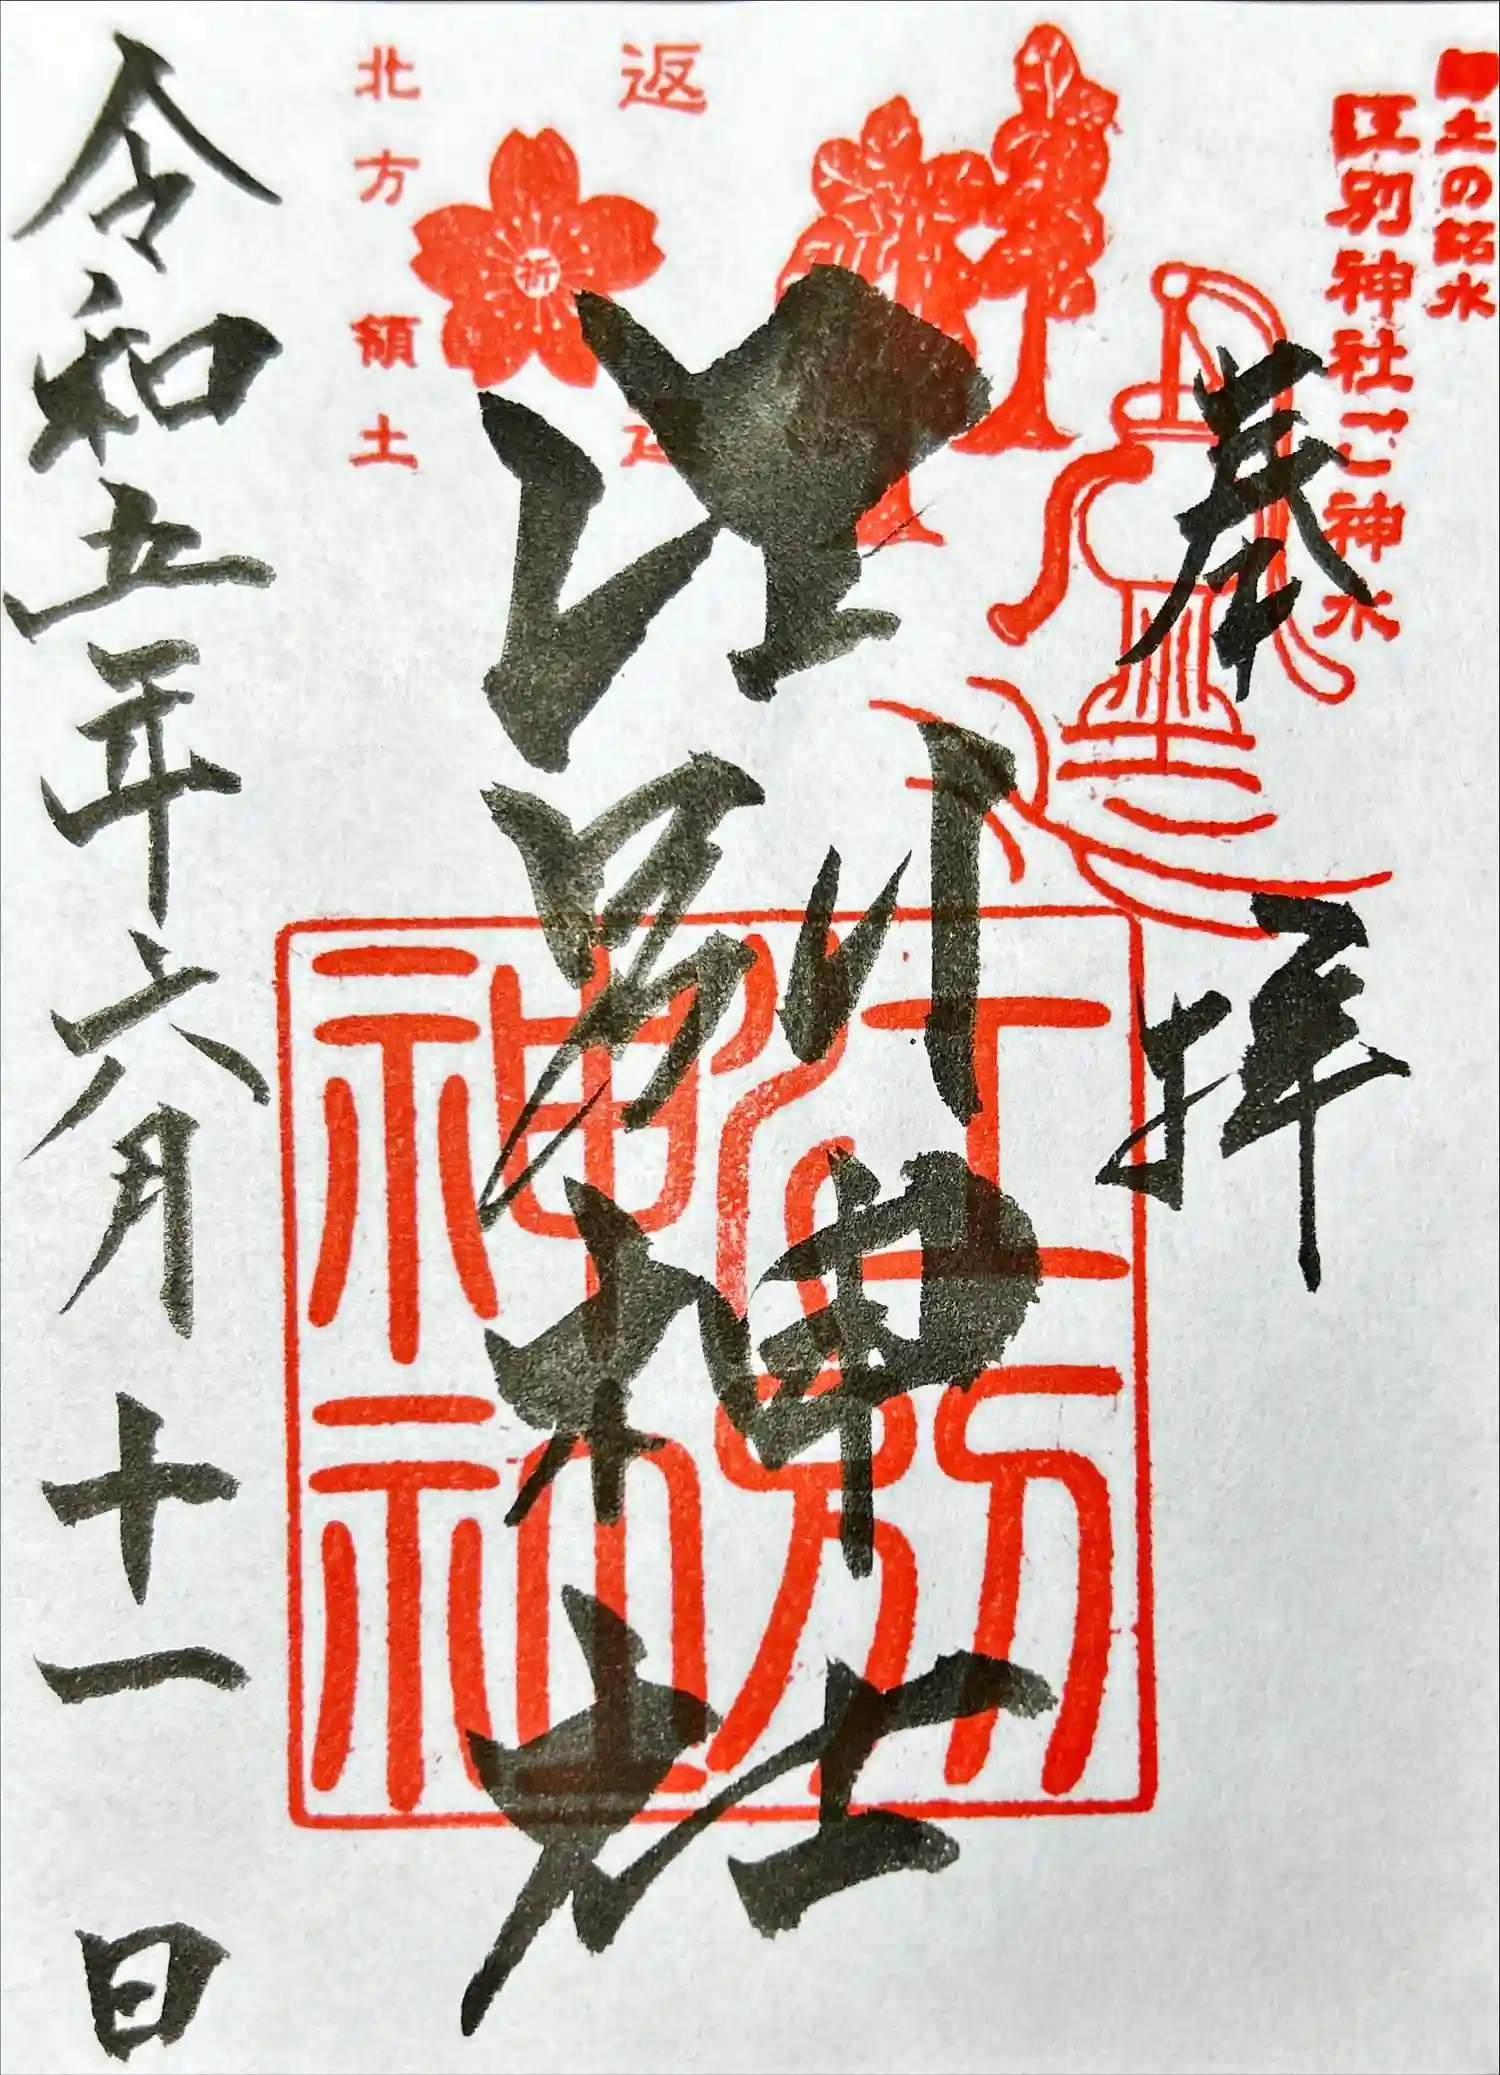 土の銘水
江別神社ご神水
奉拝
江別神社
江別
神社
返
祈
北方領土
令和五年六月十一日